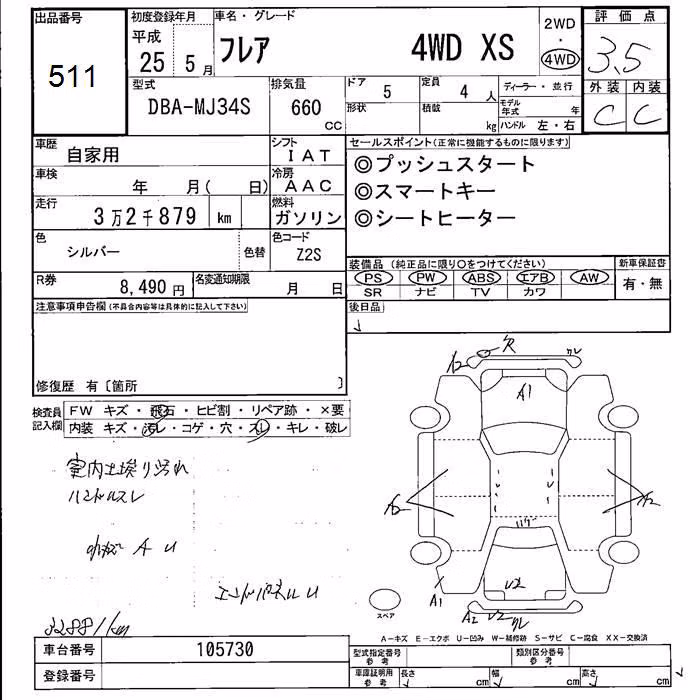 出品番号
511
初度登録年月
平成
25 5月
車名・グレード
フレア 4WD XS
2WD
・
4WD
評価点
3.5
外装 内装
C C
型式
DBA-MJ34S
排気量
660 cc
ドア 5
定員 4 人
形状
積載 kg
ディーラー・並行
モデル年式 年
ハンドル 左・右
車歴 自家用
シフト IAT
車検 年 月( 日)
冷房 AAC
走行 3万2千879 km
燃料 ガソリン
色 シルバー
色替
色コード Z2S
R券 8,490円
名変通知期限 月 日
セールスポイント(正常に機能するものに限ります)
◎プッシュスタート
◎スマートキー
◎シートヒーター
装備品(純正品に限り○をつけてください)
PS PW ABS エアB AW
SR ナビ TV カワ
新車保証書
有・無
後日品
注意事項申告欄(不具合内容等は具体的に記入して下さい)
修復歴 有〔箇所 〕
検査員記入欄
FW キズ・飛石・ヒビ割・リペア跡・×要
内装 キズ・汚レ・コゲ・穴・スレ・キレ・破レ
室内土埃り汚れ
ハンドルスレ
小キズ A U
エンドパネル U
32881km
A2 欠 クレ
A1
A2
A2
ハゲ
U2
A1
A2 U2 クレ
スペア
A-キズ E-エクボ U-凹み W-補修跡 S-サビ C-腐食 XX-交換済
車台番号 105730
登録番号
型式指定番号 参考
類別区分番号 参考
車庫証明用 参考
長さ cm 幅 cm 高さ cm